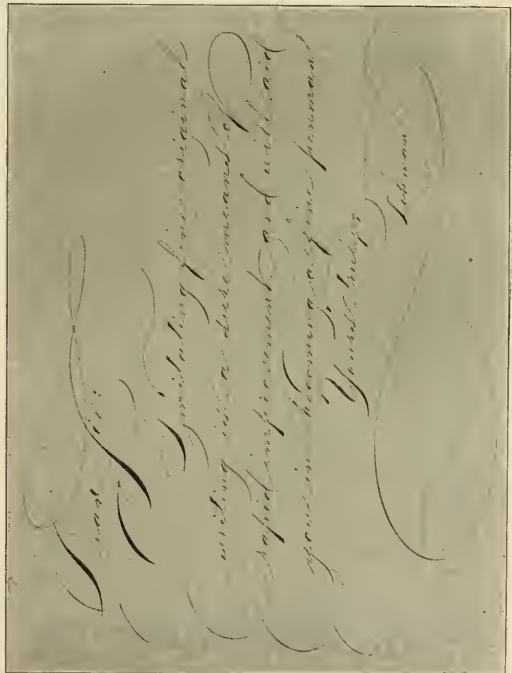 Dear Sir:
Imitating fine original
writing is a sure means of
rapid improvement and will aid
you in becoming a fine penman
Yours truly,